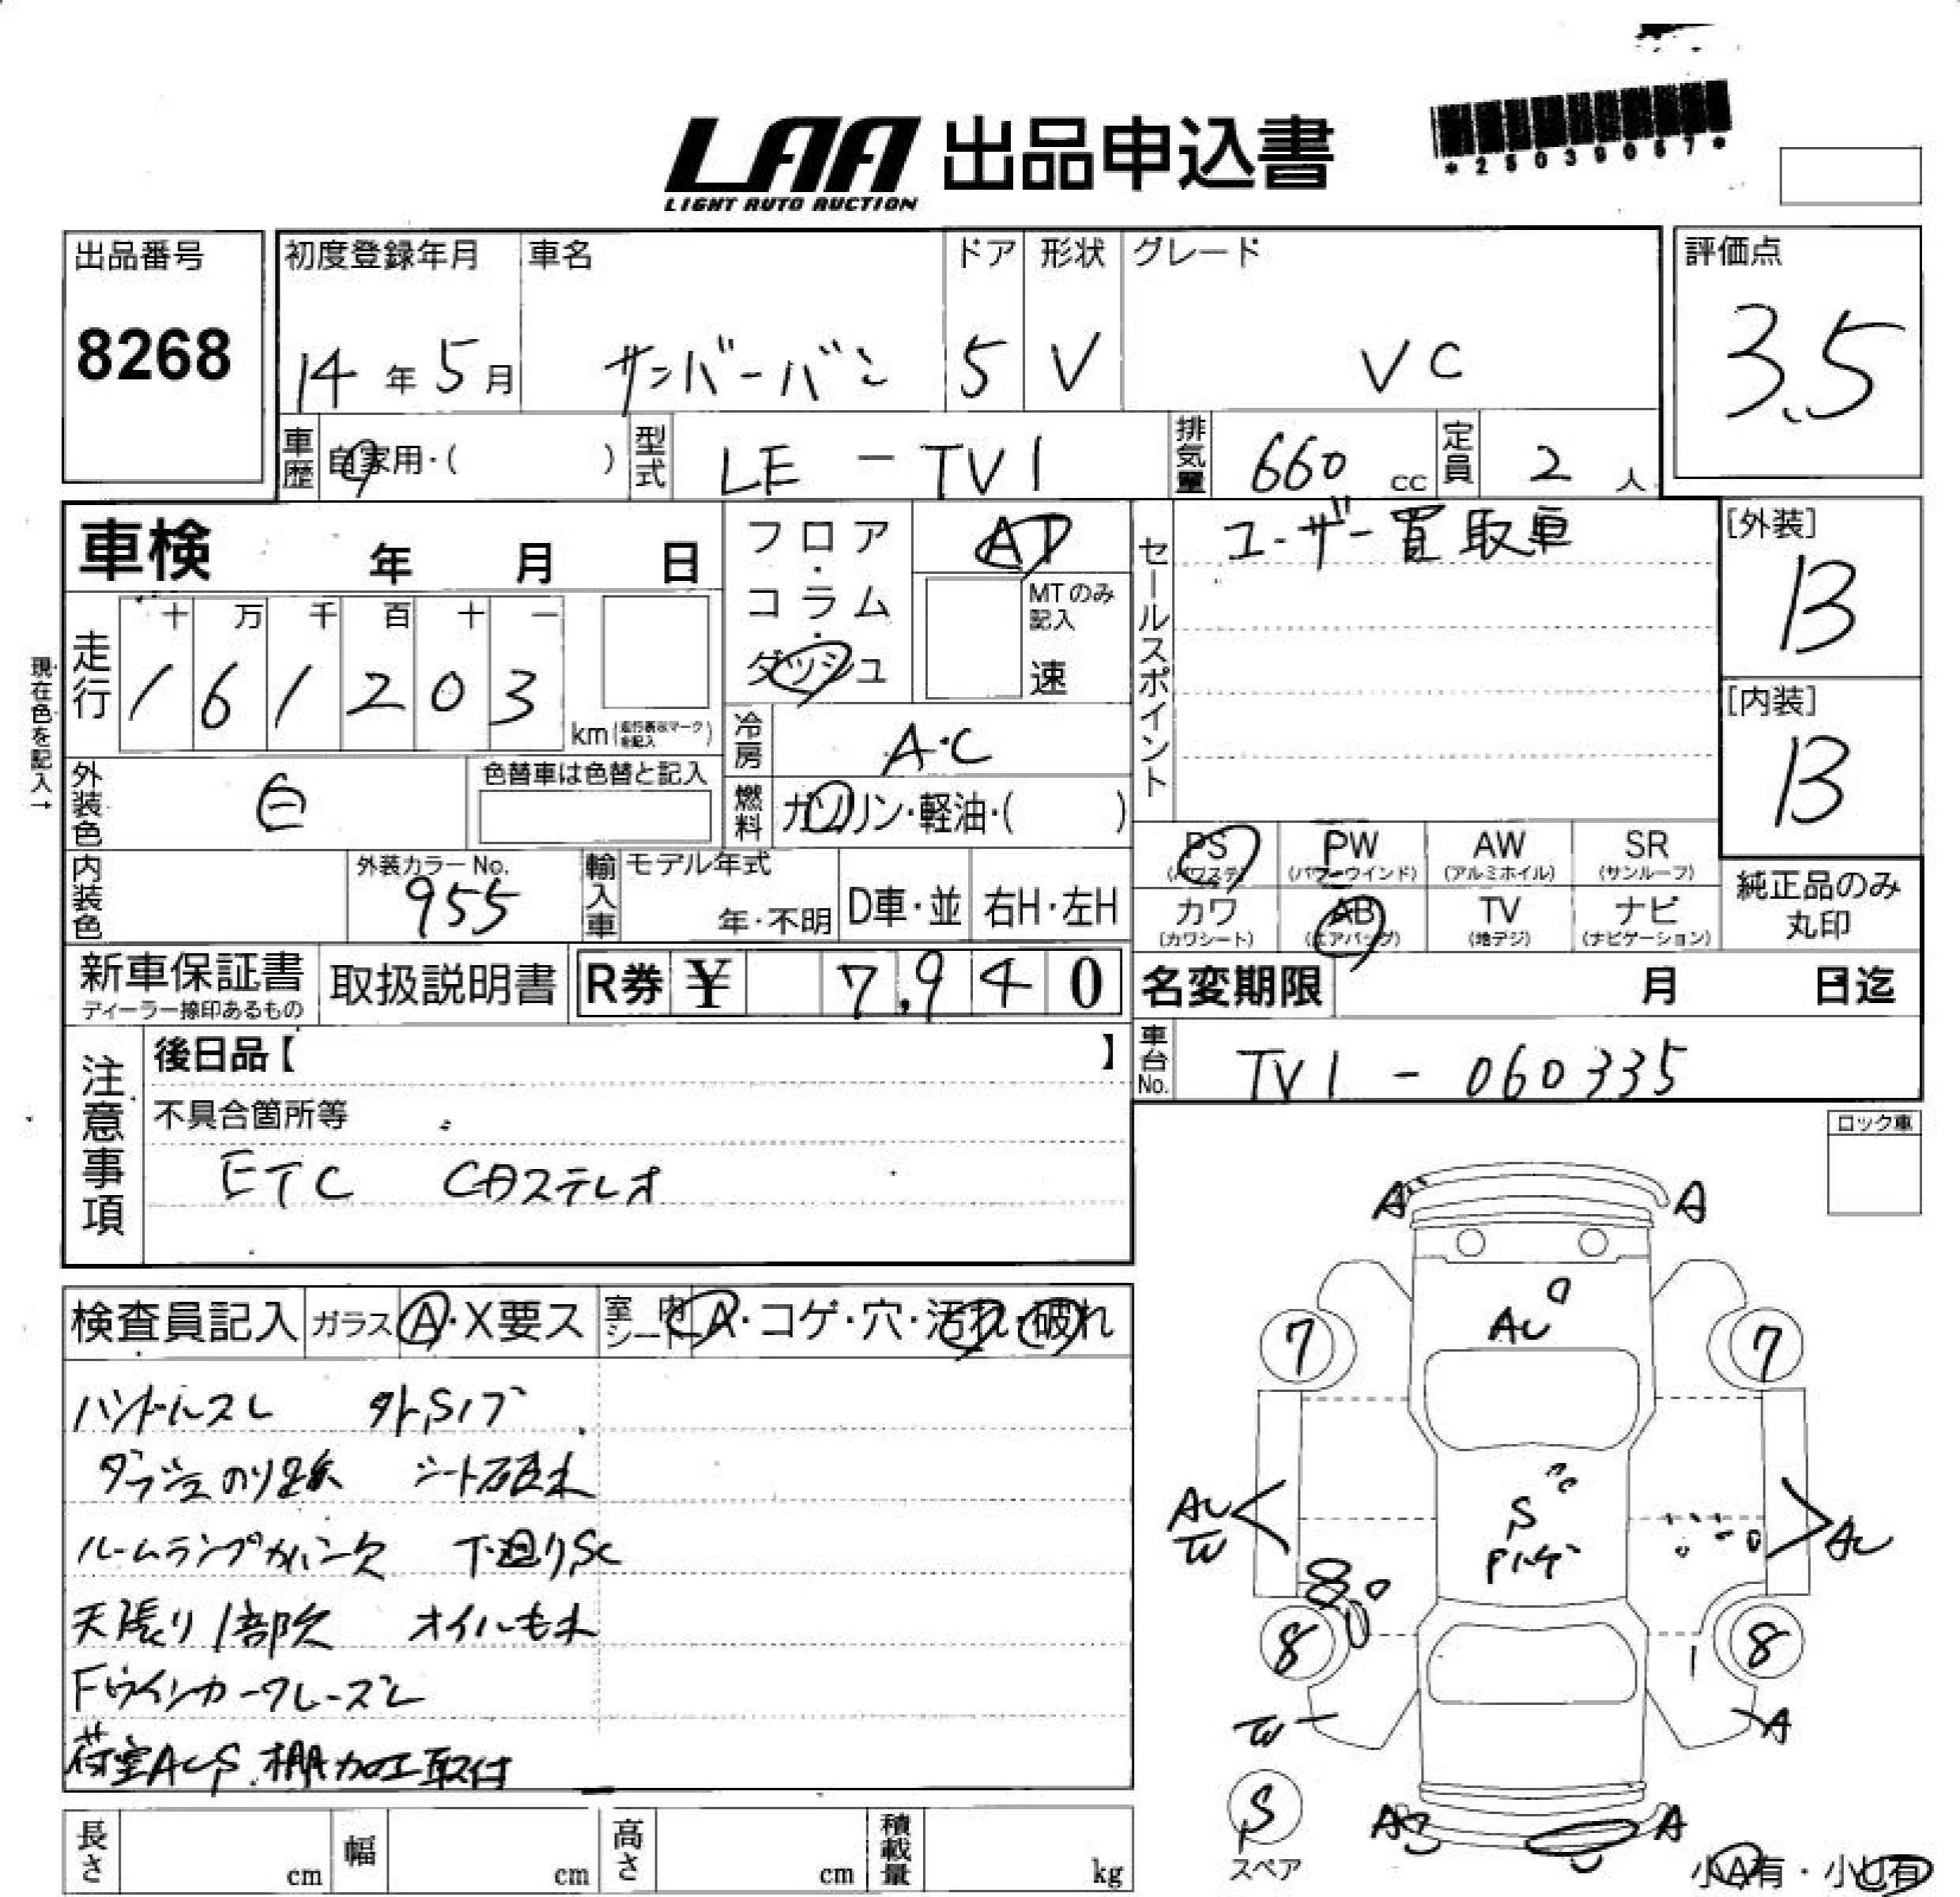 LAA 出品申込書
LIGHT AUTO AUCTION
*25039067*
出品番号
8268
初度登録年月
14年5月
車名
サンバーバン
ドア
5
形状
V
グレード
VC
評価点
3.5
車歴
自家用・( )
型式
LE-TV1
排気量
660cc
定員
2人
車検 年 月 日
現在色を記入→
走行
十 万 千 百 十 一
1 6 1 2 0 3
km(走行表示マークを記入)
フロア・コラム・ダッシュ
AT
MTのみ記入
速
冷房
A・C
燃料
ガソリン・軽油・( )
セールスポイント
ユーザー買取車
[外装]
B
[内装]
B
外装色
白
色替車は色替と記入
内装色
外装カラーNo.
955
輸入車
モデル年式
年・不明
D車・並
右H・左H
PS
(パワステ)
PW
(パワーウインド)
AW
(アルミホイル)
SR
(サンルーフ)
カワ
(カワシート)
AB
(エアバッグ)
TV
(地デジ)
ナビ
(ナビゲーション)
純正品のみ
丸印
新車保証書
ディーラー捺印あるもの
取扱説明書
R券 ¥ 7,940
名変期限 月 日迄
車台No.
TV1-060335
注意事項
後日品【 】
不具合箇所等
ETC CDステレオ
ロック車
検査員記入
ガラス
A・X要ス
室内シート
A・コゲ・穴・汚れ・破れ
ハンドルスレ
ダッシュのり跡 シート破れ
ルームランプカバー欠 下廻りSC
天張り1部欠 オイルもれ
Fウインカーワレーズレ
荷室AUS.棚加工取付
A A
AU
7 7
AU
S
AU
8 8
A
S
スペア
A
小A有・小U有
長さ cm
幅 cm
高さ cm
積載量 kg